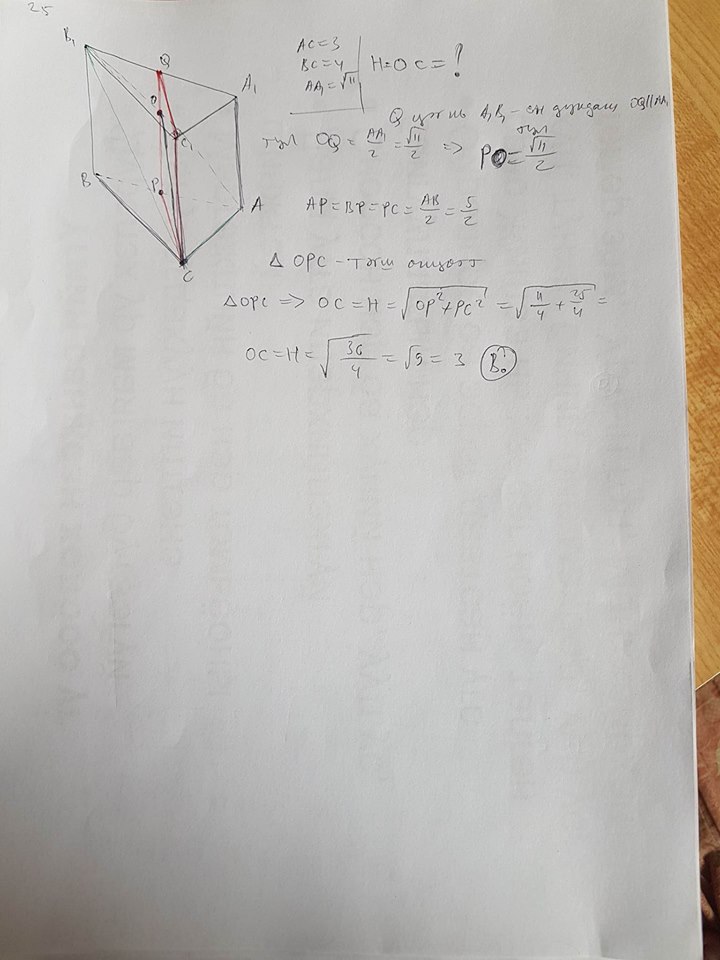 25
B₁
Q
A₁
O
C₁
B
P
A
C
AC=3
BC=4
AA₁=√11
H=OC=?
Q цэг нь A₁B₁-ын дундаж OQ||AA₁
тул OQ = AA₁/2 = √11/2 => PO = √11/2
тул
AP=BP=PC= AB/2 = 5/2
△ OPC - тэгш өнцөгт
△OPC => OC=H=√(OP²+PC²) = √(11/4 + 25/4) =
OC=H=√(36/4) = √9 = 3 B.